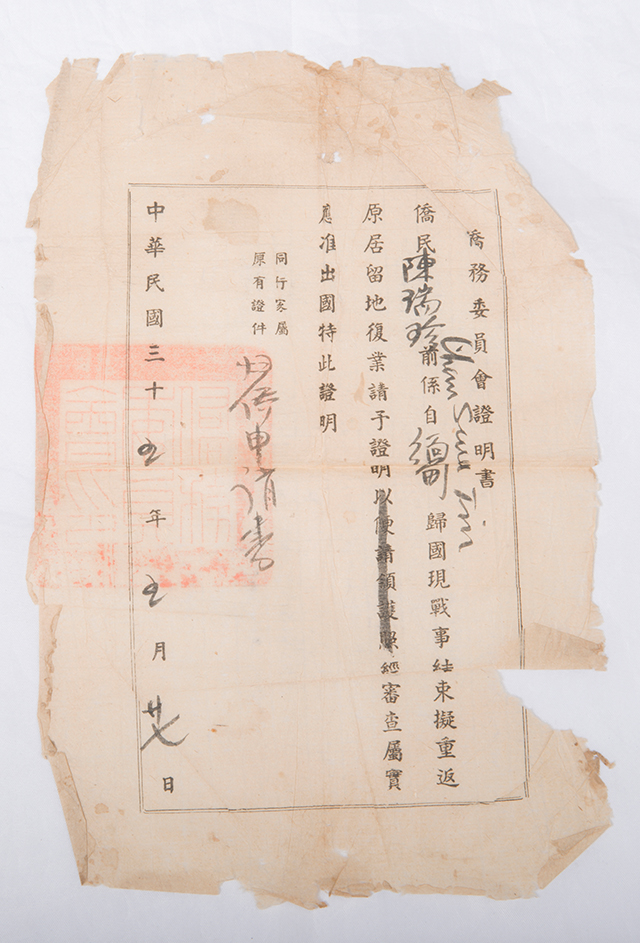 僑務委員會證明書
僑民陳瑞珍前係自緬甸歸國現戰事結束擬重返
原居留地復業請予證明以便請領護照經審查屬實
應准出國特此證明
同行家屬
原有證件
保申請書
中華民國三十五年五月廿七日